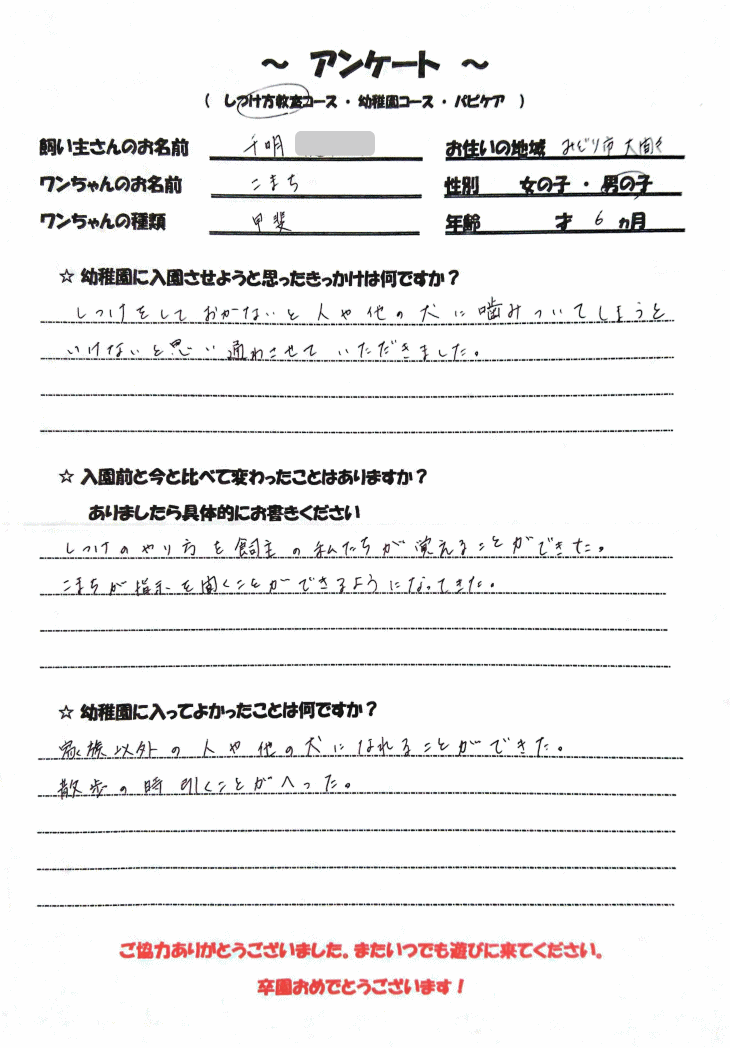 ～ アンケート ～
( しつけ方教室コース ・ 幼稚園コース ・ パピケア )
飼い主さんのお名前 千明 お住いの地域 みどり市 大間々
ワンちゃんのお名前 こまち 性別 女の子 ・ 男の子
ワンちゃんの種類 甲斐 年齢 才 6 ヵ月
☆ 幼稚園に入園させようと思ったきっかけは何ですか？
しつけをしておかないと人や他の犬に噛みついてしまうと
いけないと思い通わさせていただきました。
☆ 入園前と今と比べて変わったことはありますか？
ありましたら具体的にお書きください
しつけのやり方を飼主の私たちが覚えることができた。
こまちが指示を聞くことができるようになってきた。
☆ 幼稚園に入ってよかったことは何ですか？
家族以外の人や他の犬になれることができた。
散歩の時引くことがへった。
ご協力ありがとうございました。またいつでも遊びに来てください。
卒園おめでとうございます！